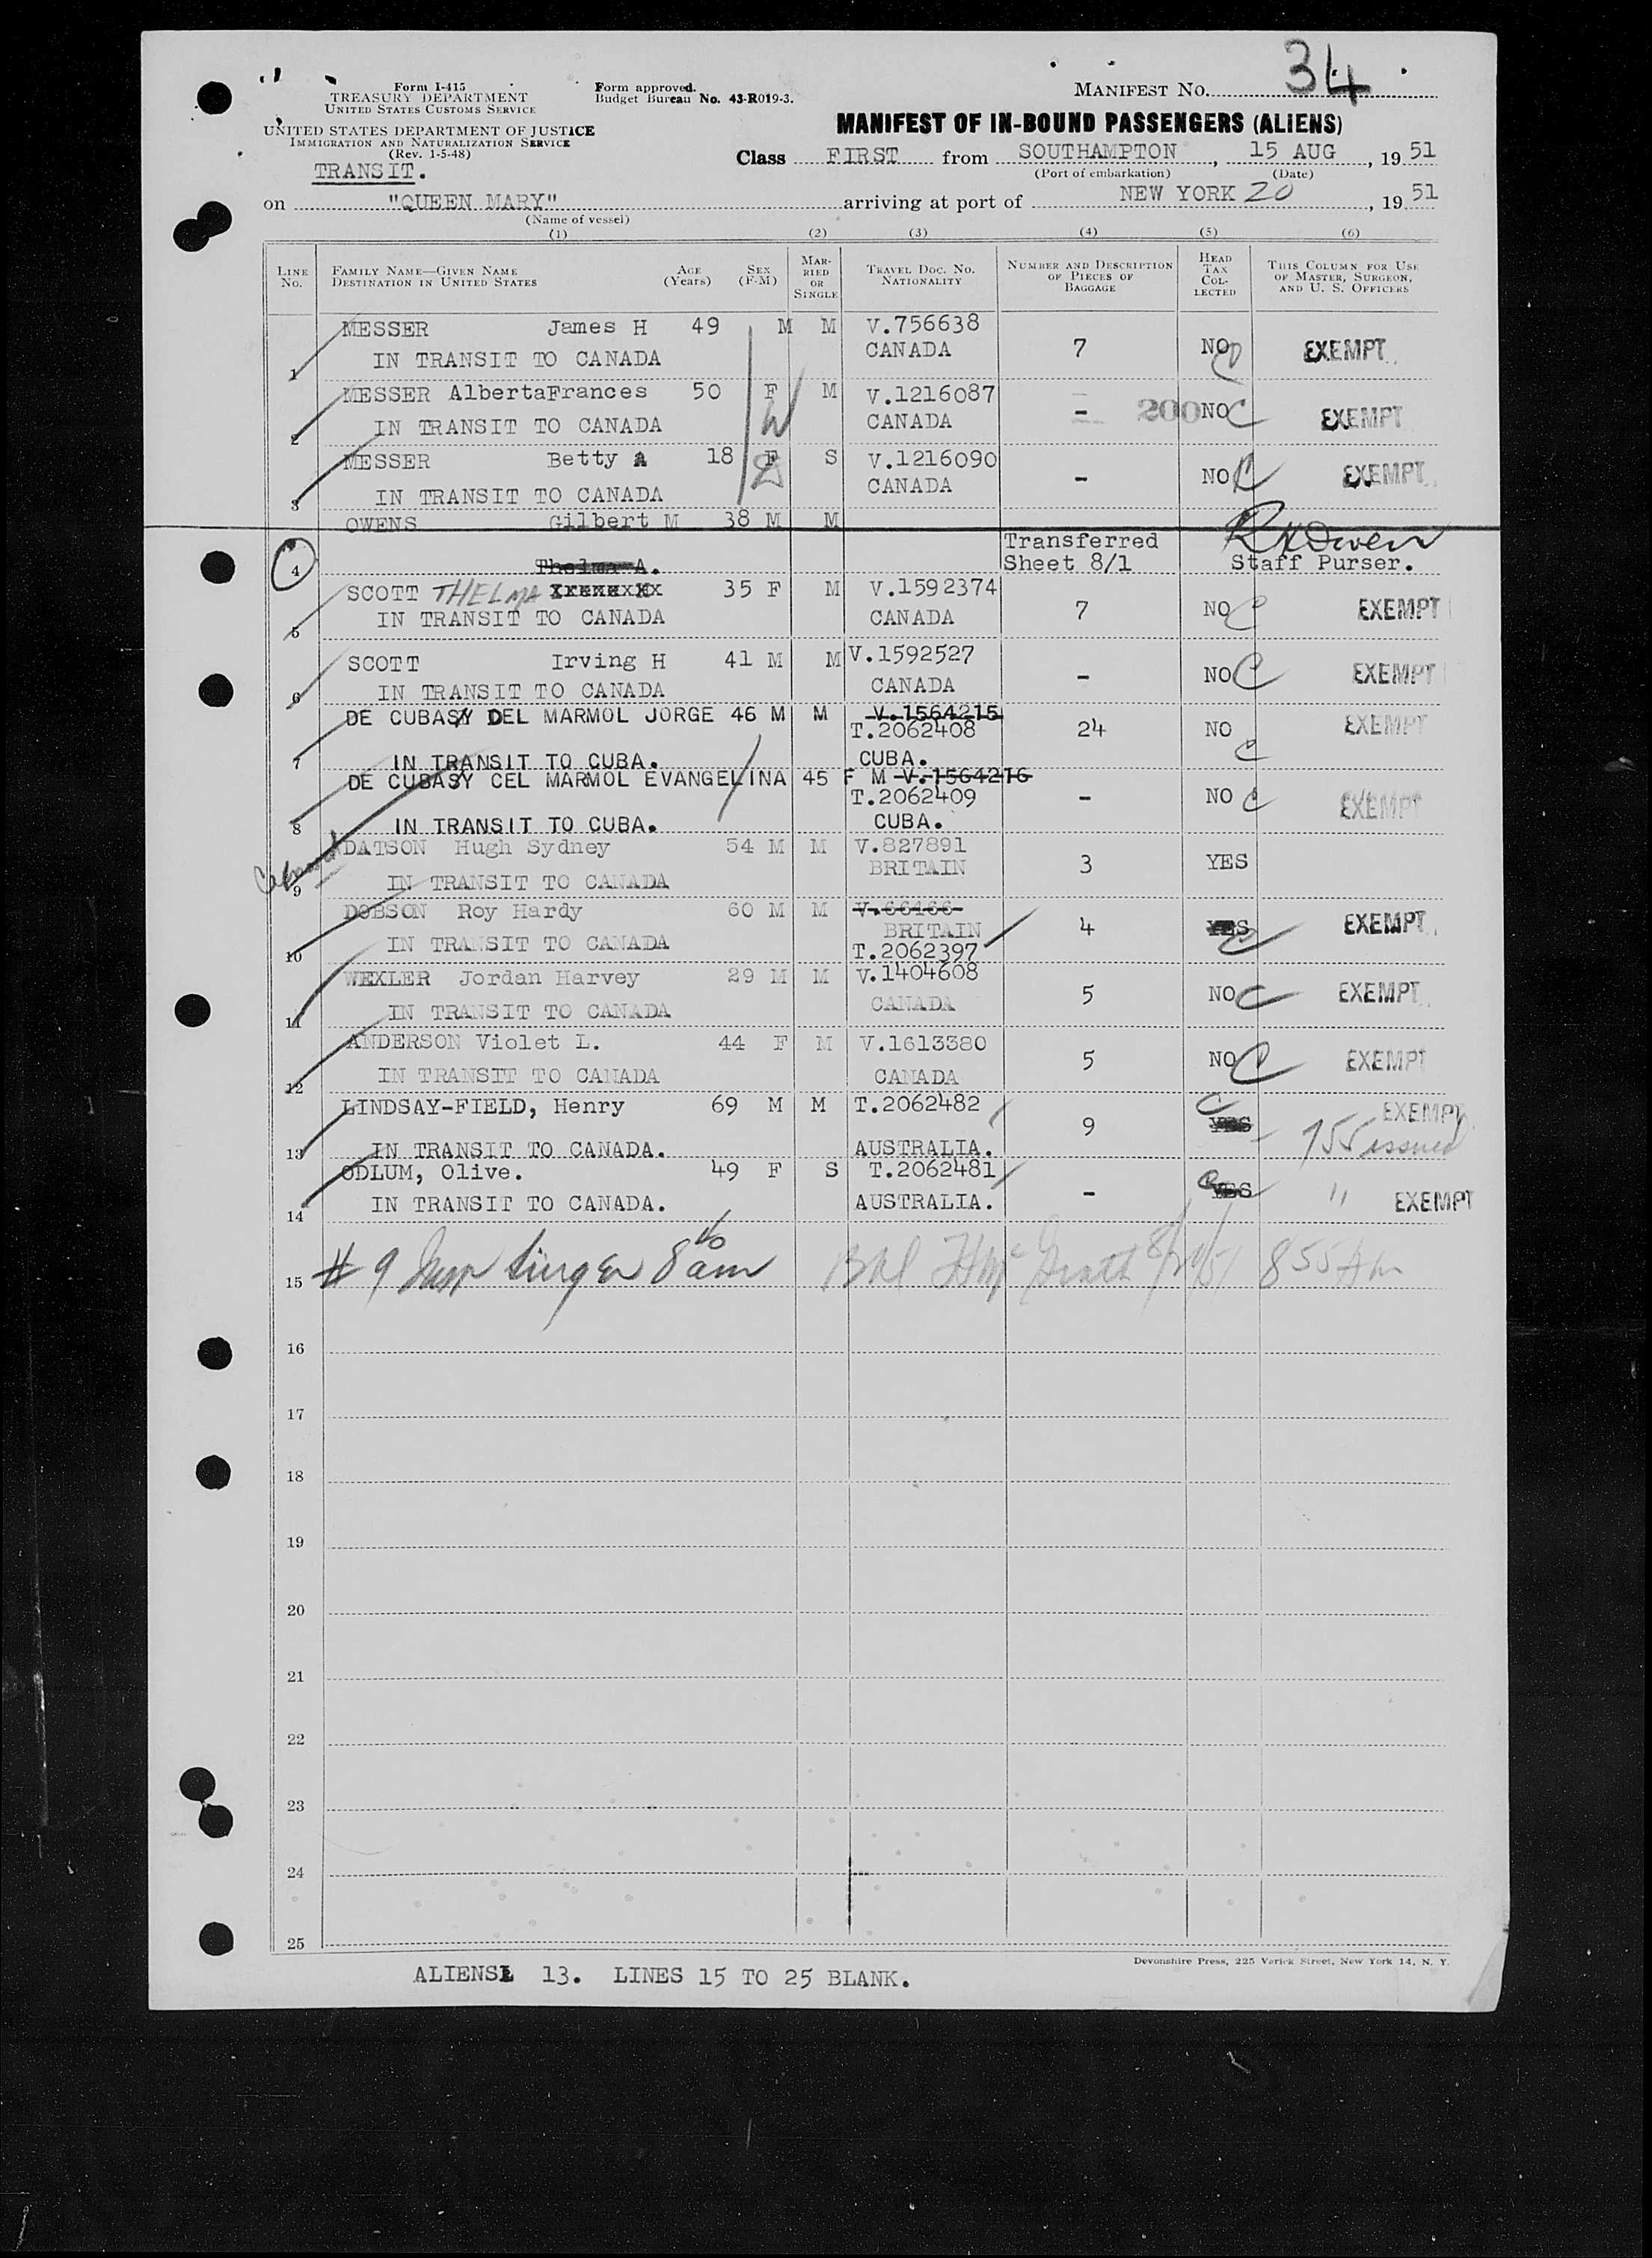 Form I-415
TREASURY DEPARTMENT
UNITED STATES CUSTOMS SERVICE
UNITED STATES DEPARTMENT OF JUSTICE
IMMIGRATION AND NATURALIZATION SERVICE
(Rev. 1-5-48)
TRANSIT.
Form approved.
Budget Bureau No. 43-R019-3.
MANIFEST NO. 34
MANIFEST OF IN-BOUND PASSENGERS (ALIENS)
Class FIRST from SOUTHAMPTON, 15 AUG, 1951
(Port of embarkation) (Date)
on "QUEEN MARY" arriving at port of NEW YORK 20, 1951
(Name of vessel)
(1) (2) (3) (4) (5) (6)
LINE NO. FAMILY NAME—GIVEN NAME DESTINATION IN UNITED STATES AGE (Years) SEX (F-M) MARRIED OR SINGLE TRAVEL DOC. NO. NATIONALITY NUMBER AND DESCRIPTION OF PIECES OF BAGGAGE HEAD TAX COLLECTED THIS COLUMN FOR USE OF MASTER, SURGEON, AND U. S. OFFICERS
MESSER James H 49 M M V.756638
1 IN TRANSIT TO CANADA CANADA 7 NO EXEMPT
MESSER AlbertaFrances 50 F M V.1216087
2 IN TRANSIT TO CANADA CANADA - 200 NO EXEMPT
MESSER Betty A 18 F S V.1216090
3 IN TRANSIT TO CANADA CANADA - NO EXEMPT
OWENS Gilbert M 38 M M
4 Transferred Sheet 8/1 R H Owen Staff Purser.
Thelma A.
SCOTT THELMA 35 F M V.1592374
5 IN TRANSIT TO CANADA CANADA 7 NO EXEMPT
SCOTT Irving H 41 M M V.1592527
6 IN TRANSIT TO CANADA CANADA - NO EXEMPT
DE CUBAS Y DEL MARMOL JORGE 46 M M V.1564215
T.2062408 24 NO EXEMPT
7 IN TRANSIT TO CUBA. CUBA.
DE CUBASY CEL MARMOL EVANGELINA 45 F M V.1564216
T.2062409 - NO EXEMPT
8 IN TRANSIT TO CUBA. CUBA.
DATSON Hugh Sydney 54 M M V.827891
BRITAIN 3 YES
9 IN TRANSIT TO CANADA
DOBSON Roy Hardy 60 M M V.66166
BRITAIN 4 YES EXEMPT
10 IN TRANSIT TO CANADA T.2062397
WEXLER Jordan Harvey 29 M M V.1404608
11 IN TRANSIT TO CANADA CANADA 5 NO EXEMPT
ANDERSON Violet L. 44 F M V.1613380
12 IN TRANSIT TO CANADA CANADA 5 NO EXEMPT
LINDSAY-FIELD, Henry 69 M M T.2062482 9 YES EXEMPT
13 IN TRANSIT TO CANADA. AUSTRALIA. 755 issued
ODLUM, Olive. 49 F S T.2062481 - YES " EXEMPT
14 IN TRANSIT TO CANADA. AUSTRALIA.
15 # 9 Insp Singer 8 40 am 8/20/51 8 55 Am
16
17
18
19
20
21
22
23
24
25
Devonshire Press, 225 Varick Street, New York 14, N. Y.
ALIENS 13. LINES 15 TO 25 BLANK.